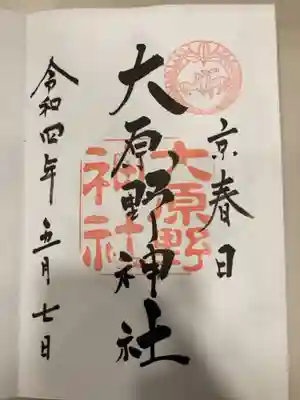 京春日
大原野神社
大原野
神社
令和四年五月七日